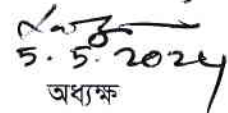 5.5.2024
অধ্যক্ষ